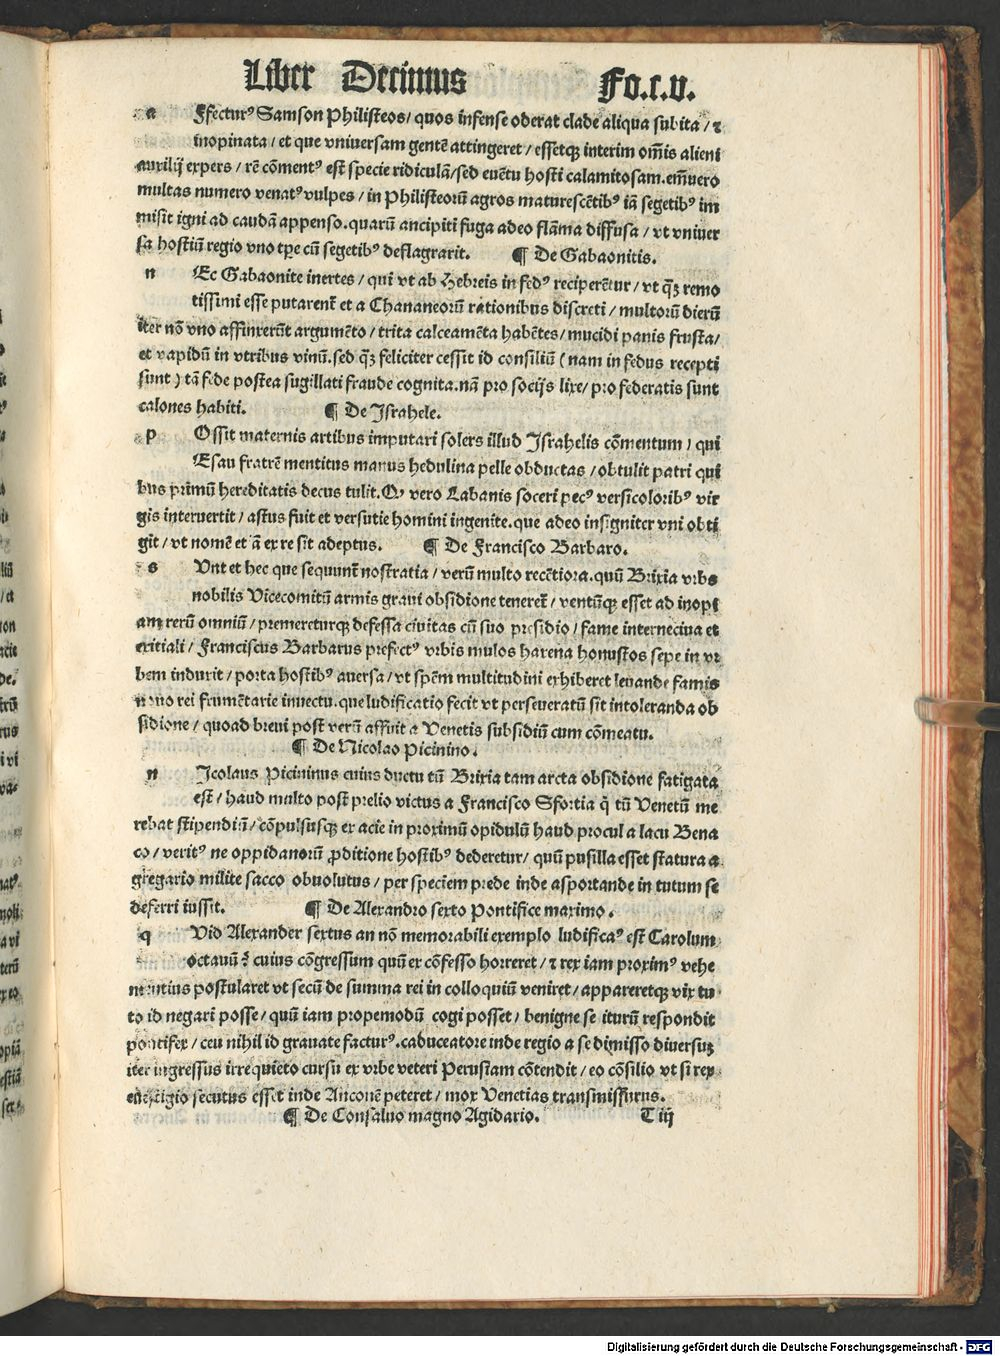 Liber Decimus Fo.c.v.
a Ffectur⁹ Samson Philisteos/ quos infense oderat clade aliqua subita / ⁊
inopinata / et que vniuersam gentē attingeret / essetqꝫ interim om̄is alieni
auxilij expers / rē cōment⁹ est specie ridiculā/sed euētu hosti calamitosam.em̄uero
multas numero venat⁹ vulpes / in Philisteorū agros maturescētib⁹ iā segetib⁹ im
misit igni ad caudā appenso.quarū ancipiti fuga adeo flāma diffusa / vt vniuer
sa hostiū regio vno tp̄e cū segetib⁹ deflagrarit. ¶ De Gabaonitis.
n Ec Gabaonite inertes / qui vt ab Hebreis in fed⁹ reciperētur / vt qꝫ remo
tissimi esse putarent̄ et a Chananeorū rationibus discreti / multorū dierū
iter nō vno affinxerūt argumēto / trita calceamēta habētes / mucidi panis frusta/
et vapidū in vtribus vinū.sed qꝫ feliciter cessit id consiliū ( nam in fedus recepti
sunt ) tā fede postea sugillati fraude cognita.nā pro socijs lixe/ pro federatis sunt
calones habiti. ¶ De Israhele.
p Ossit maternis artibus imputari solers illud Israhelis cōmentum / qui
Esau fratrē mentitus manus hedulina pelle obductas / obtulit patri qui
bus primū hereditatis decus tulit.Qꝫ vero Labanis soceri pec⁹ versicolorib⁹ vir
gis interuertit / astus fuit et versutie homini ingenite.que adeo insigniter vni obti
git / vt nomē et ā ex re sit adeptus. ¶ De Francisco Barbaro.
s Unt et hec que sequunt̄ nostratia / verū multo recētiora.quū Brixia vrbs
nobilis Vicecomitū armis graui obsidione teneret̄ / ventūqꝫ esset ad inopi
am rerū omniū / premereturqꝫ defessa ciuitas cū suo presidio / fame interneciua et
exitiali / Franciscus Barbarus prefect⁹ vrbis mulos harena honustos sepe in vr
bem induxit / porta hostib⁹ auersa / vt spēm multitudini exhiberet leuande famis
nouo rei frumētarie inuectu.que ludificatio fecit vt perseueratū sit intoleranda ob
sidione / quoad breui post verū affuit a Venetis subsidiū cum cōmeatu.
¶ De Nicolao Picinino.
n Icolaus Picininus cuius ductu tū Brixia tam arcta obsidione fatigata
est / haud multo post prelio victus a Francisco Sfortia q̄ tū Venetū me
rebat stipendiū / cōpulsusqꝫ ex acie in proximū opidulū haud procul a lacu Bena
co / verit⁹ ne oppidanorū ꝓditione hostib⁹ dederetur / quū pusilla esset statura a
gregario milite sacco obuolutus / per speciem prede inde asportande in tutum se
deferri iussit. ¶ De Alexandro sexto Pontifice maximo.
q Vid Alexander sextus an nō memorabili exemplo ludifica⁹ est Carolum
octauū? cuius cōgressum quū ex cōfesso horreret / ⁊ rex iam proxim⁹ vehe
mentius postularet vt secū de summa rei in colloquiū veniret / appareretqꝫ vix tu
to id negari posse / quū iam propemodū cogi posset / benigne se iturū respondit
pontifex / ceu nihil id grauate factur⁹.caduceatore inde regio a se dimisso diuersuꝫ
iter ingressus irrequieto cursu ex vrbe veteri Perusiam cōtendit / eo cōsilio vt si rex
e vestigio secutus esset inde Anconē peteret / mox Venetias transmissurus.
¶ De Consaluo magno Agidario. T iij
Digitalisierung gefördert durch die Deutsche Forschungsgemeinschaft - DFG